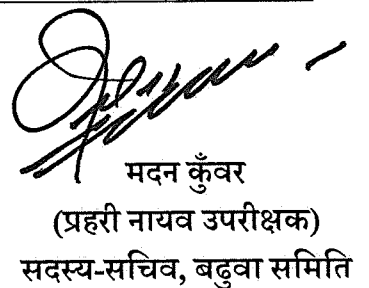 मदन कुँवर
(प्रहरी नायव उपरीक्षक)
सदस्य-सचिव, बढुवा समिति